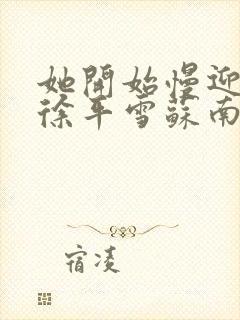 她開始慢迎
徐平雪蘇南
宿凌